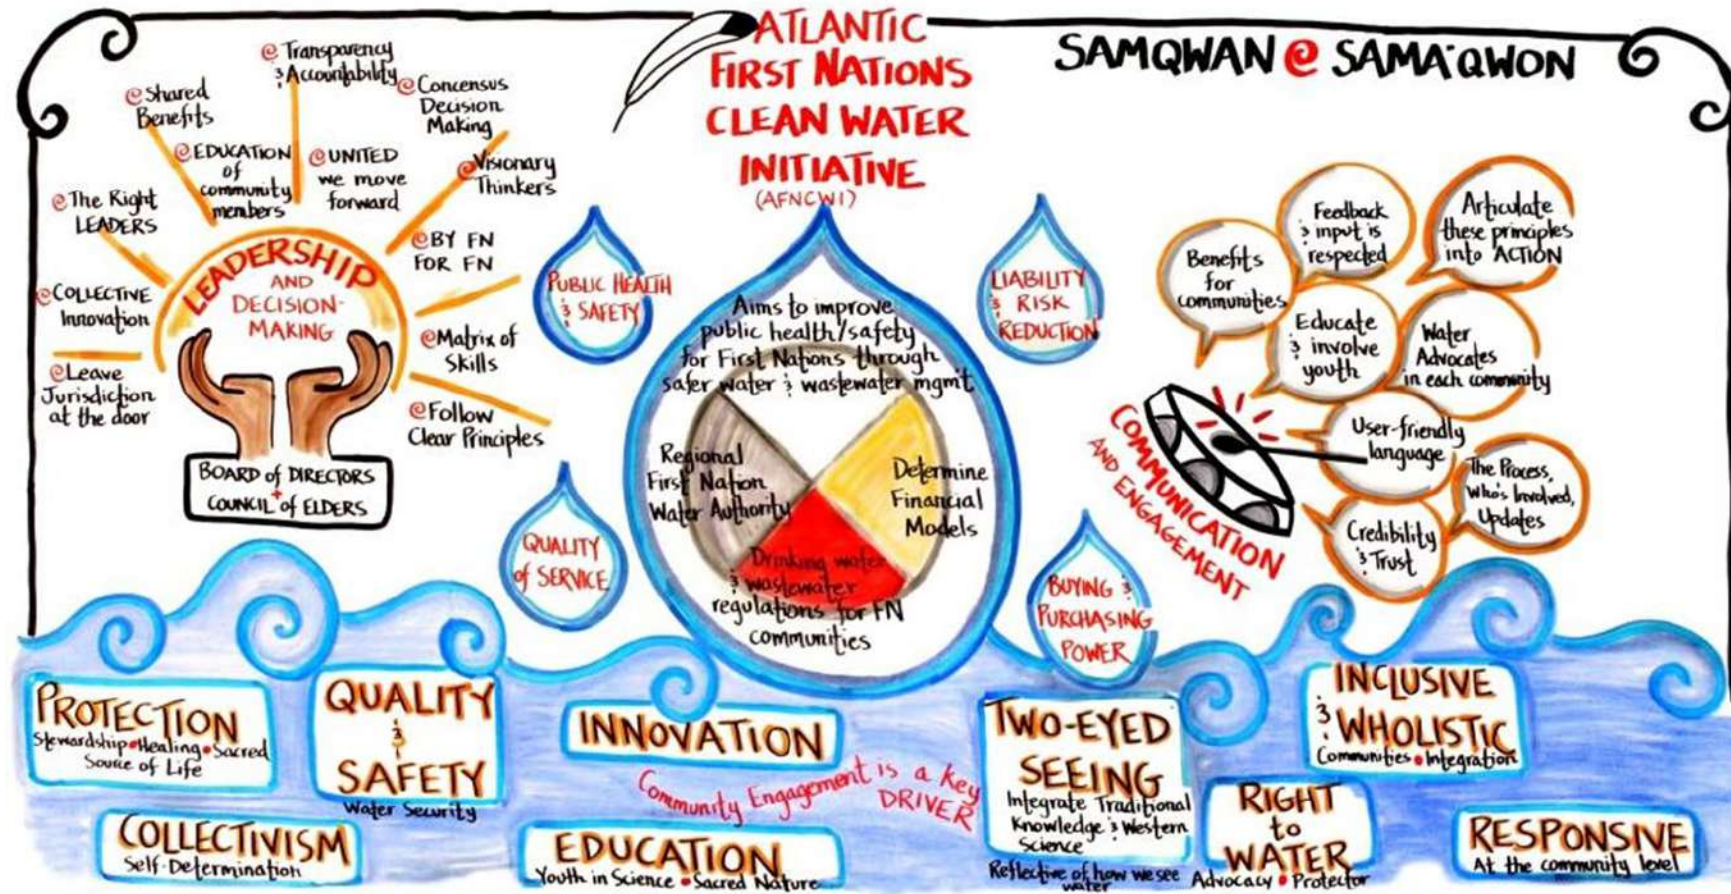 ATLANTIC
FIRST NATIONS
CLEAN WATER
INITIATIVE
(AFNCWI)
SAMQWAN @ SAMA'QWON
@ Transparency
& Accountability
@ Shared
Benefits
@ Concensus
Decision
Making
@ EDUCATION
of
community
members
@ UNITED
we move
forward
@ Visionary
Thinkers
@ The Right
LEADERS
@ BY FN
FOR FN
@ COLLECTIVE
Innovation
@ Matrix of
Skills
@ Leave
Jurisdiction
at the door
@ Follow
Clear Principles
LEADERSHIP
AND
DECISION-
MAKING
BOARD of DIRECTORS
+
COUNCIL of ELDERS
PUBLIC HEALTH
& SAFETY
QUALITY
of SERVICE
LIABILITY
& RISK
REDUCTION
BUYING &
PURCHASING
POWER
Aims to improve
public health/safety
for First Nations through
safer water & wastewater mgmt
Regional
First Nation
Water Authority
Determine
Financial
Models
Drinking water
& wastewater
regulations for FN
communities
COMMUNICATION
AND ENGAGEMENT
Benefits
for
communities
Feedback
& input is
respected
Articulate
these principles
into ACTION
Educate
& involve
youth
Water
Advocates
in each community
User-friendly
language
The Process,
Who's Involved,
Updates
Credibility
& Trust
PROTECTION
Stewardship • Healing • Sacred
Source of Life
QUALITY
&
SAFETY
Water Security
INNOVATION
Community Engagement is a key
DRIVER
COLLECTIVISM
Self-Determination
EDUCATION
Youth in Science • Sacred Nature
TWO-EYED
SEEING
Integrate Traditional
Knowledge & Western
Science
Reflective of how we see
water
RIGHT
to
WATER
Advocacy • Protector
INCLUSIVE
& WHOLISTIC
Communities • Integration
RESPONSIVE
At the community level